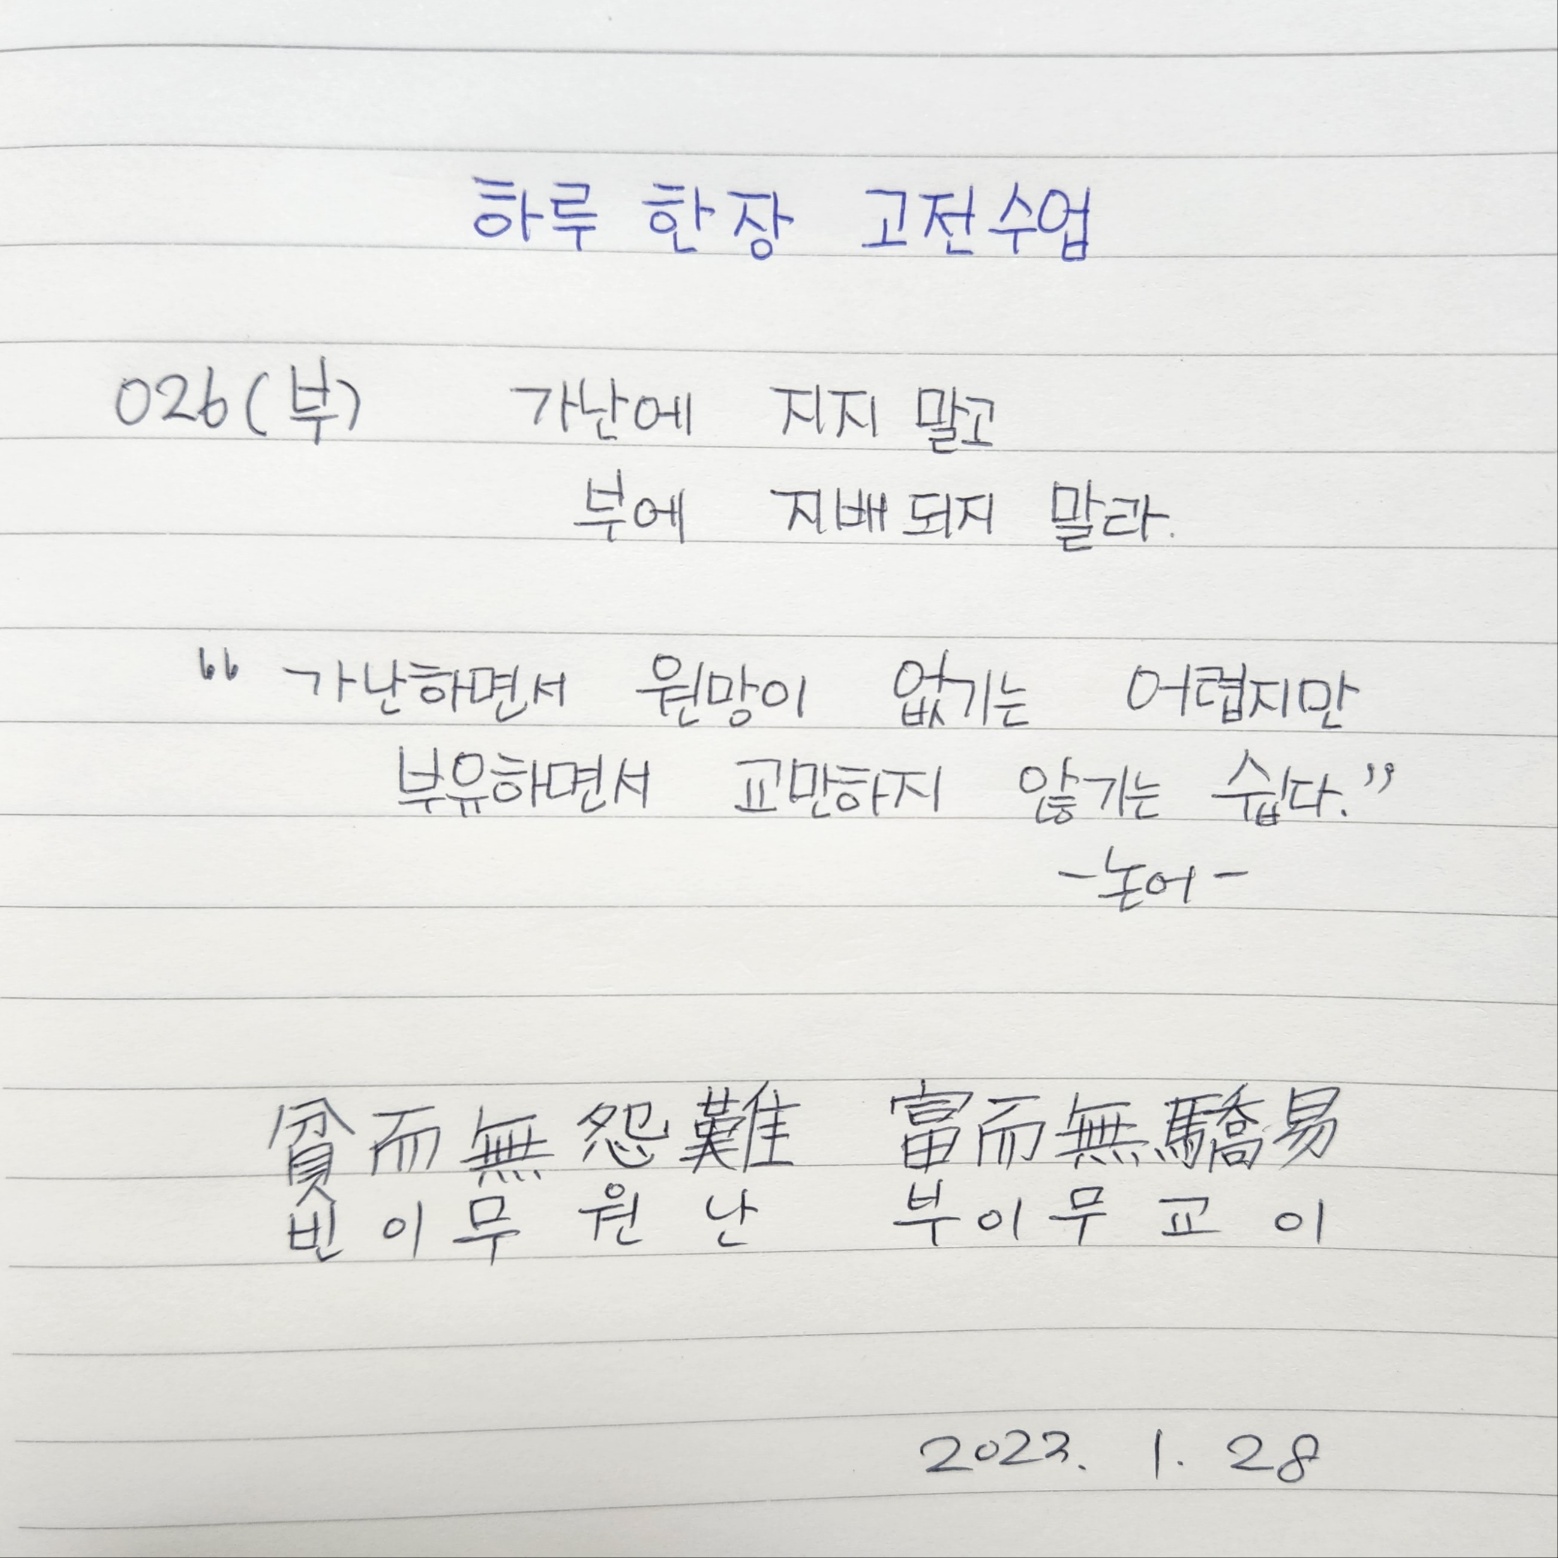 하루 한 장 고전수업
026(부) 가난에 지지 말고
부에 지배되지 말라.
“가난하면서 원망이 없기는 어렵지만
부유하면서 교만하지 않기는 쉽다.”
-논어-
貧而無怨難 富而無驕易
빈이무원난 부이무교이
2023. 1. 28